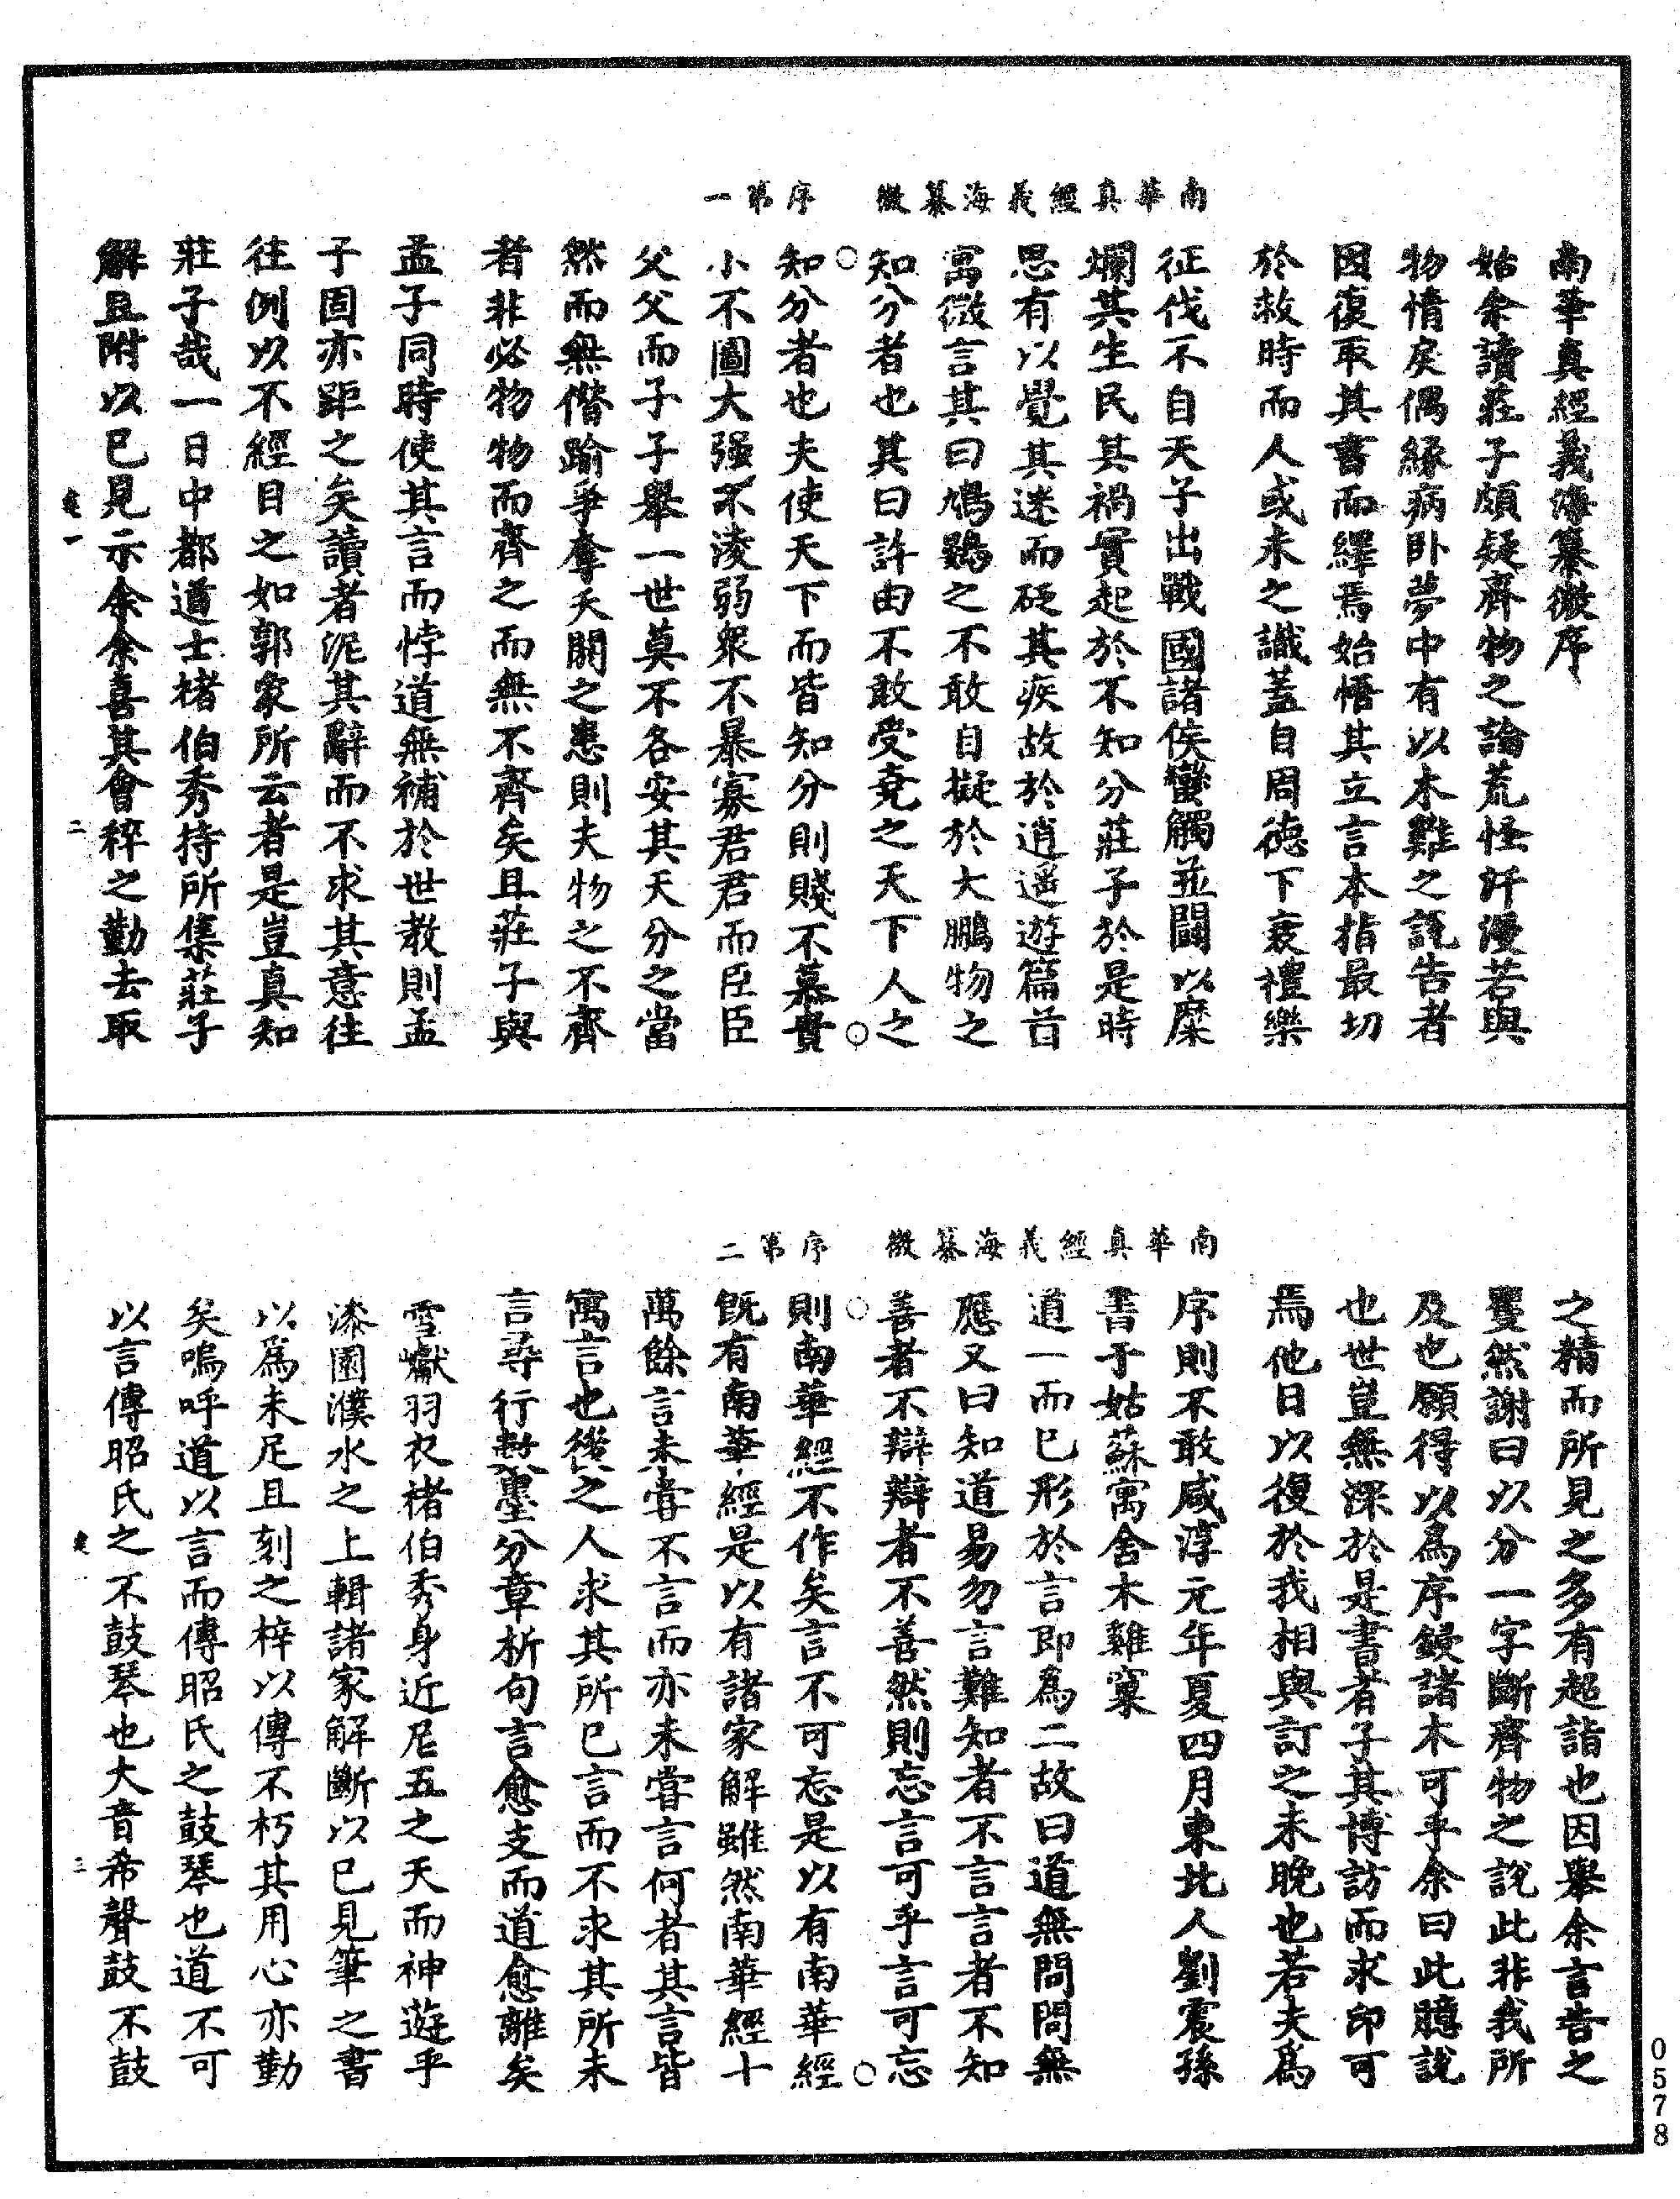 南華真經義海纂微序
姑余讀莊子頗疑齊物之論荒怪訐漫若與
物情戾偶緣病卧夢中有以木雞之說告者
因復取其書而繹焉始悟其立言本指最切
於救時而人或未之識蓋自周德下衰禮樂
南華真經義海纂微　序　第一
征伐不自天子出戰國諸侯蠻觸並鬪以糜
爛其生民其禍實起於不知分莊子於是時
思有以覺其迷而砭其疾故於逍遥遊篇首
寓微言其曰鳩鷃之不敢自擬於大鵬物之
知分者也其曰許由不敢受堯之天下人之
知分者也夫使天下而皆知分則賤不慕貴
小不圖大強不淩弱衆不暴寡君君而臣臣
父父而子子舉一世莫不各安其天分之當
然而無僭踰爭奪夭閼之患則夫物之不齊
者非必物物而齊之而無不齊矣且莊子與
孟子同時使其言而悖道無補於世教則孟
子固亦距之矣讀者泥其辭而不求其意往
往例以不經目之如郭象所云者是豈真知
莊子哉一日中都道士褚伯秀持所集莊子
解且附以已見示余余喜其會稡之勤去取
一
二
之精而所見之多有超詣也因舉余言告之
矍然謝曰以分一字斷齊物之說此非我所
及也願得以爲序鋟諸木可乎余曰此臆說
也世豈無深於是書者子其博訪而求印可
焉他日以復於我相與訂之未晚也若夫爲
南華真經義海纂微　序　第二
序則不敢咸淳元年夏四月東北人劉震孫
書于姑蘇寓舍木雞窠
道一而已形於言即爲二故曰道無問問無
應又曰知道易勿言難知者不言言者不知
善者不辯辯者不善然則忘言可乎言可忘
則南華經不作矣言不可忘是以有南華經
既有南華經是以有諸家解雖然南華經十
萬餘言未嘗不言而亦未嘗言何者其言皆
寓言也後之人求其所已言而不求其所未
言尋行數墨分章析句言愈支而道愈離矣
雪巘羽衣褚伯秀身近尼五之天而神遊乎
漆園濮水之上輯諸家解斷以已見筆之書
以爲未足且刻之梓以傳不朽其用心亦勤
矣嗚呼道以言而傳昭氏之鼓琴也道不可
以言傳昭氏之不鼓琴也大音希聲鼓不鼓
三
0578